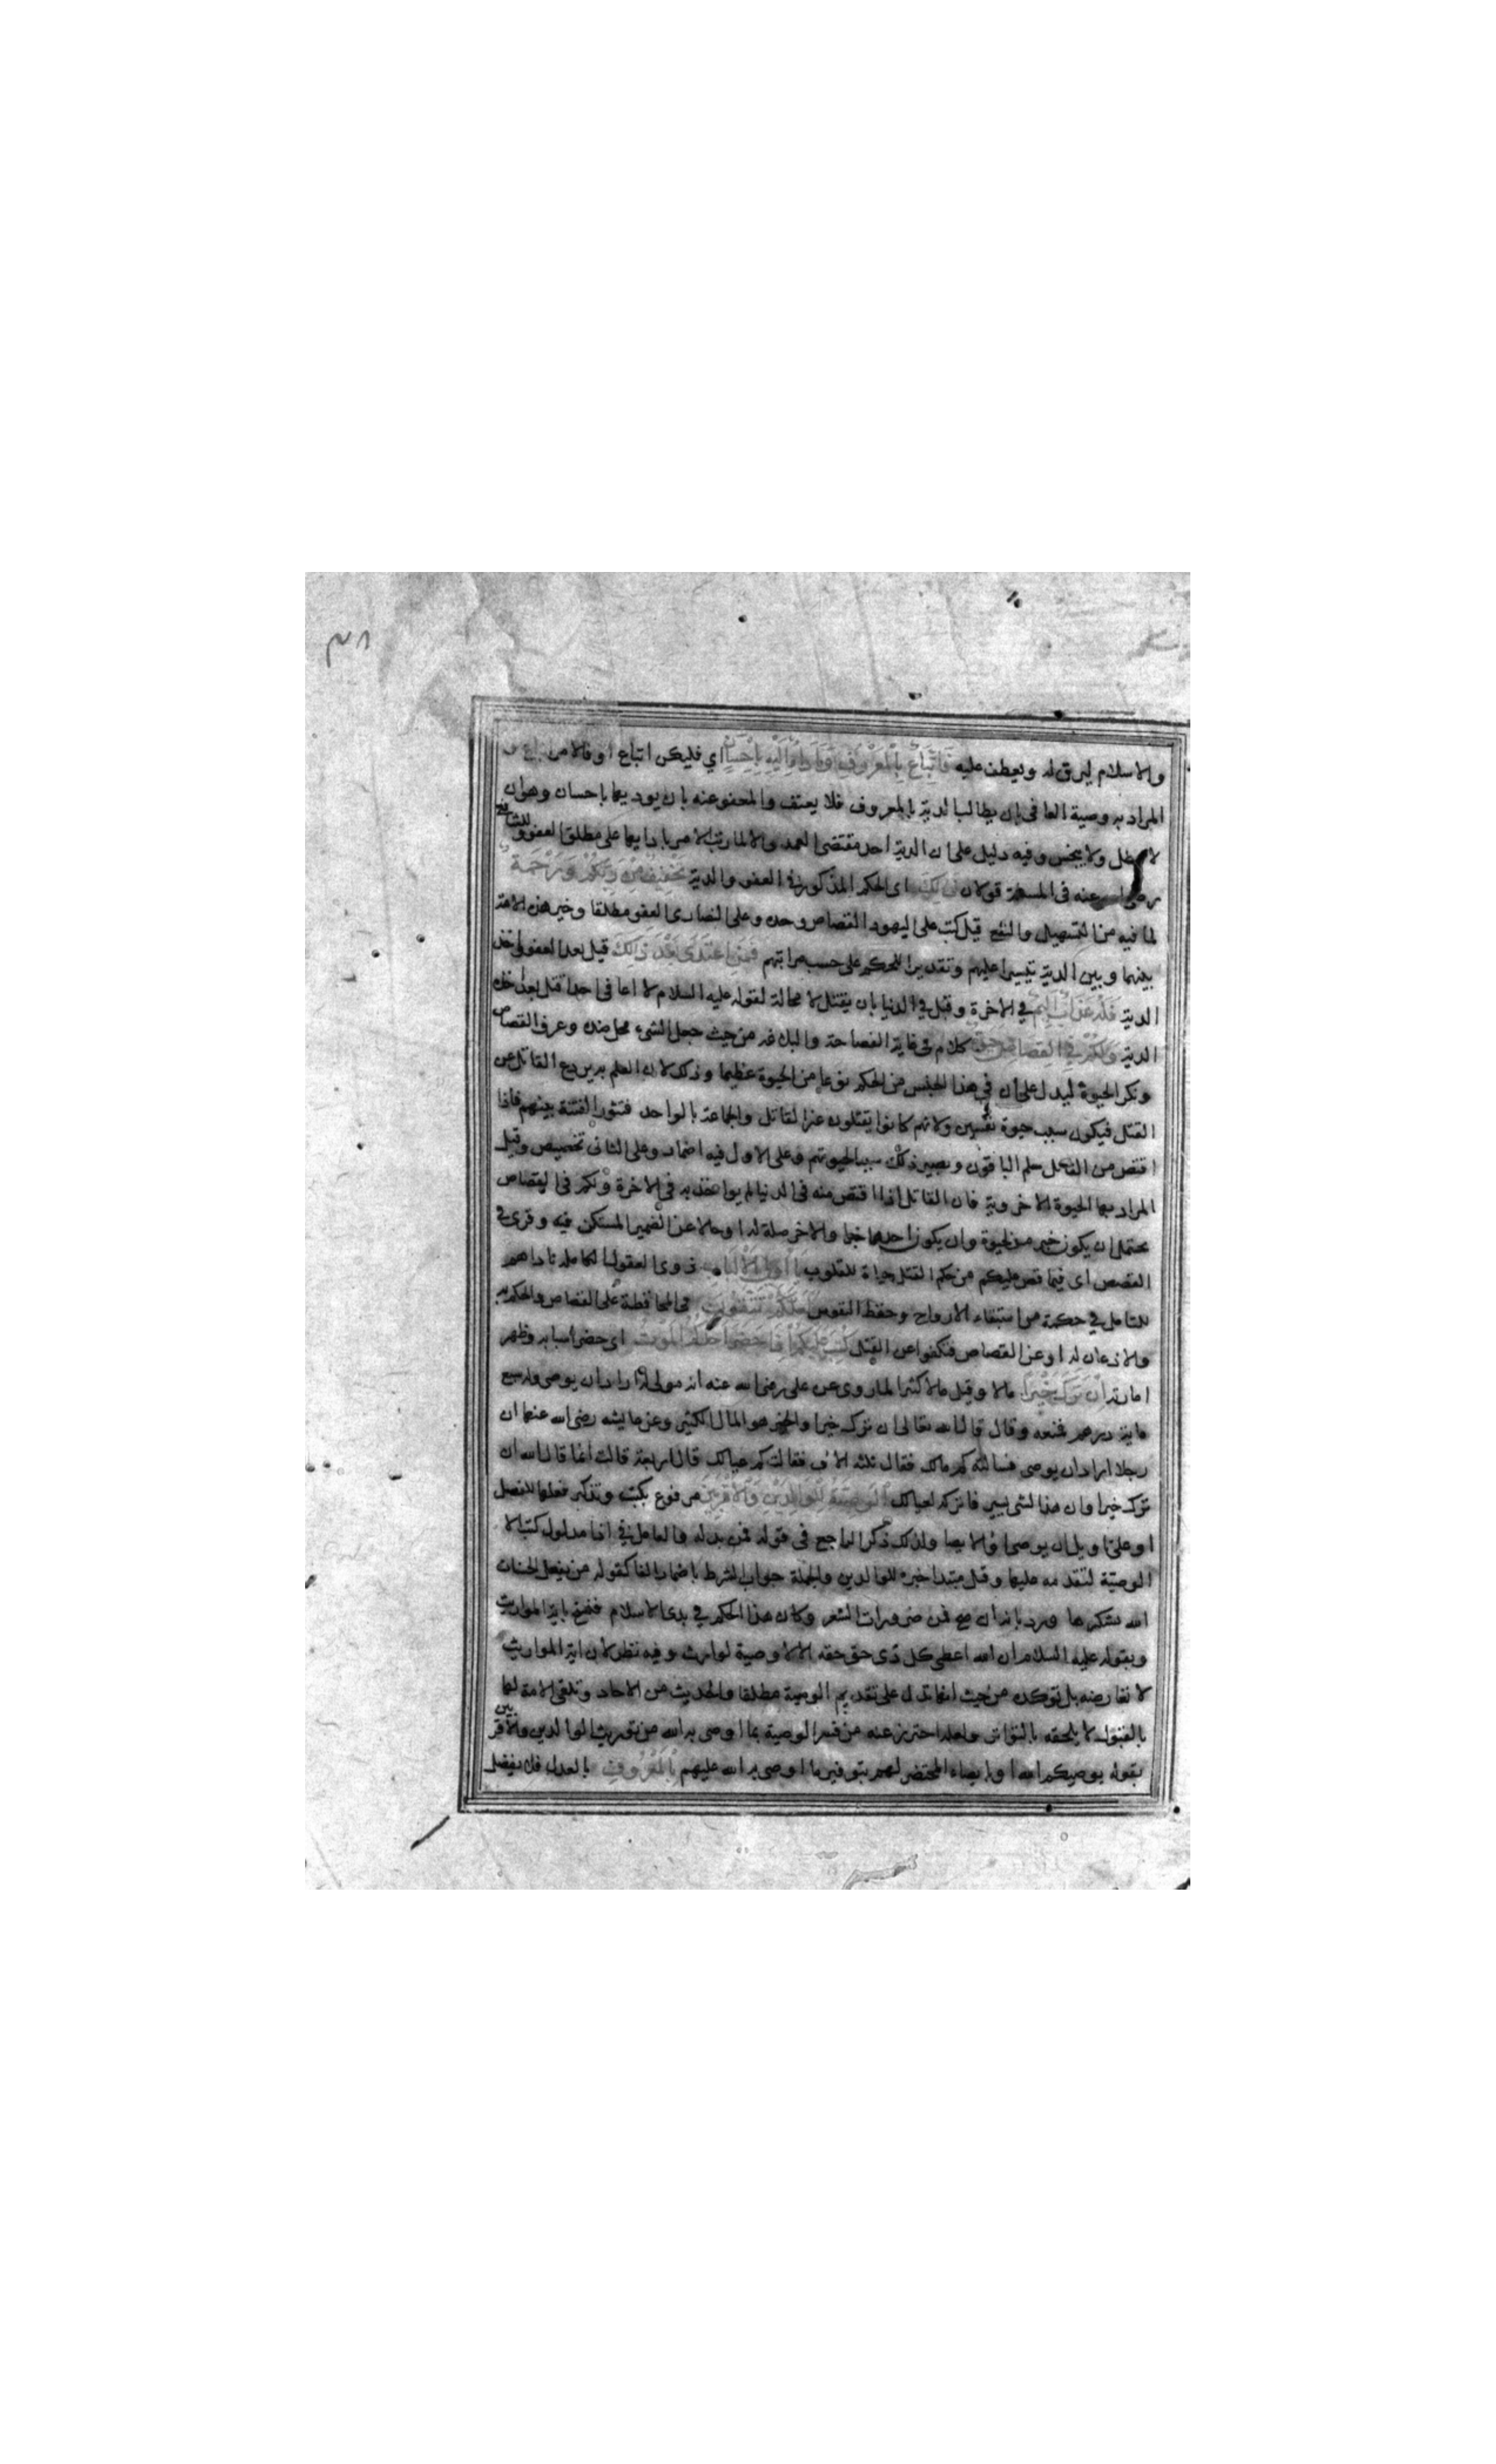 ٣٨
والاسلام ليرق له ويعطف عليه فَاتِّبَاعٌ بِالْمَعْرُوفِ وَأَدَاءٌ إِلَيْهِ بِإِحْسَانٍ اي فليكن اتباع او فالامر اتباع و
المراد به وصية العافى بان يطالب الدية بالمعروف فلا يعنف والمعفوعنه بان يوديها باحسان وهوان
لا يمطل ولا يبخس وفيه دليل على ان الدية احد مقتضى العمد والا لما رتب الامر بادايها على مطلق العفو وللشافعي
رضي الله عنه فى المسئلة قولان ذٰلِكَ اى الحكم المذكور فى العفو والدية تَخْفِيفٌ مِنْ رَبِّكُمْ وَرَحْمَةٌ
لما فيه من التسهيل والنفع قيل كتب على اليهود القصاص وحده وعلى النصارى العفو مطلقا وخير هذه الامة
بينهما وبين الدية تيسيرا عليهم وتقديرا للحكم على حسب مراتبهم فَمَنِ اعْتَدَى بَعْدَ ذٰلِكَ قيل بعد العفو واخذ
الدية فَلَهُ عَذَابٌ أَلِيمٌ في الاخرة وقيل في الدنيا بان يقتل لا محالة لقوله عليه السلام لا اعافى احدا قتل بعد اخذ
الدية وَلَكُمْ فِي الْقِصَاصِ حَيٰوةٌ كلام فى غاية الفصاحة والبلاغة من حيث جعل الشيء محل ضده وعرف القصاص
ونكر الحيوة ليدل على ان في هذا الجنس من الحكم نوعا من الحيوة عظيما وذلك لان العلم به يردع القاتل عن
القتل فيكون سبب حيوة نفسين ولانهم كانوا يقتلون غير القاتل والجماعة بالواحد فتثور الفتنة بينهم فاذا
اقتص من القاتل سلم الباقون ويصير ذلك سببا لحيوتهم وعلى الاول فيه اضمار وعلى الثانى تخصيص وقيل
المراد بها الحيوة الاخروية فان القاتل اذا اقتص منه فى الدنيا لم يواخذ به فى الاخرة ولكم فى القصاص
يحتمل ان يكون خبر من لحيوة وان يكون احدهما خبرا والاخر صلة له او حالا عن الضمير المستكن فيه وقرئ في
القصص اى فيما قص عليكم من حكم القتل حياة للقلوب يَا أُولِي الْأَلْبَابِ ذوى العقول الكاملة ناداهم
للتامل في حكمة من استبقاء الارواح وحفظ النفوس لَعَلَّكُمْ تَتَّقُونَ فى المحافظة على القصاص والحكم به
والاذعان له او عن القصاص فتكفوا عن القتل كُتِبَ عَلَيْكُمْ إِذَا حَضَرَ أَحَدَكُمُ الْمَوْتُ اى حضر اسبابه وظهر
امارته إِنْ تَرَكَ خَيْرًا مالا وقيل مالا كثيرا لما روى عن على رضي الله عنه ان مولى له اراد ان يوصى وله سبع
ماية درهم فمنعه وقال قال الله تعالى ان ترك خيرا والخير هو المال الكثير وعن عايشه رضى الله عنها ان
رجلا اراد ان يوصى فسالته كم مالك فقال ثلثه الاف فقالت كم عيالك قال اربعة قالت انما قال الله ان
ترك خيرا وان هذا لشى يسير فاتركه لعيالك الْوَصِيَّةُ لِلْوَالِدَيْنِ وَالْأَقْرَبِينَ مرفوع بكتب وتذكير فعلها للفصل
او على تاويل ان يوصى او الايصا ولذلك ذكر الراجع فى قوله فمن بدله والعامل في اذا مدلول كتب لا
الوصية لتقدمه عليها وقيل مبتدا خبره للوالدين والجملة جواب الشرط باضمار الفا كقوله من يفعل الحسنات
الله يشكرها ورد بانه ان صح فمن ضرورات الشعر وكان هذا الحكم في بدى الاسلام فنسخ باية المواريث
وبقوله عليه السلام ان الله اعطى كل ذى حق حقه الا لا وصية لوارث وفيه نظر لان اية المواريث
لا تعارضه بل توكده من حيث انها تدل على تقديم الوصية مطلقا والحديث من الاحاد وتلقى الامة لها
بالقبول لا يلحقه بالتواتر ولعله احترز عنه من فسر الوصية بما اوصى به الله من توريث الوالدين والاقربين
بقوله يوصيكم الله او بايصاء المحتضر لهم بتوفير ما اوصى به الله عليهم بِالْمَعْرُوفِ بالعدل فلا يفضل